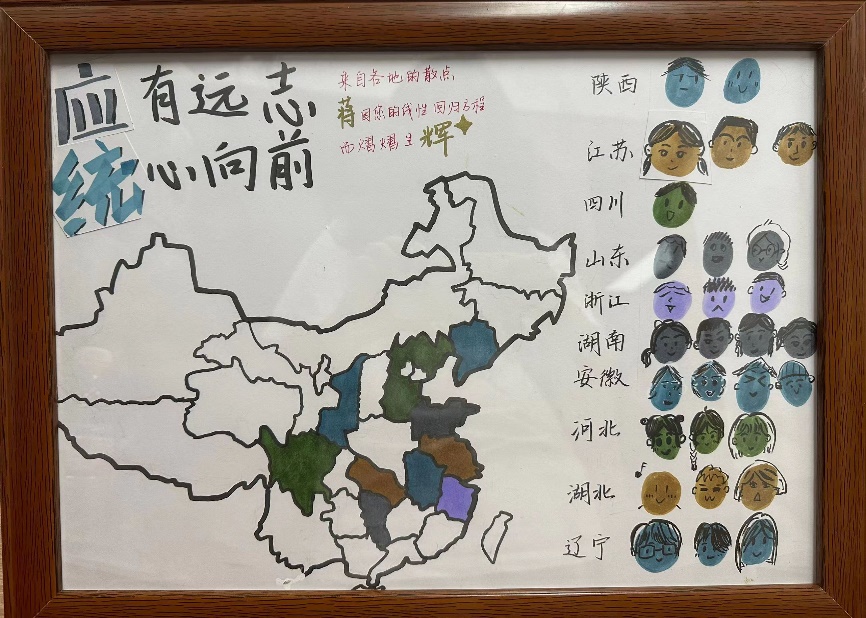 应有远志
统心向前
来自各地的散点
蒋因您的线性回归方程
而熠熠生辉
陕西
江苏
四川
山东
浙江
湖南
安徽
河北
湖北
辽宁